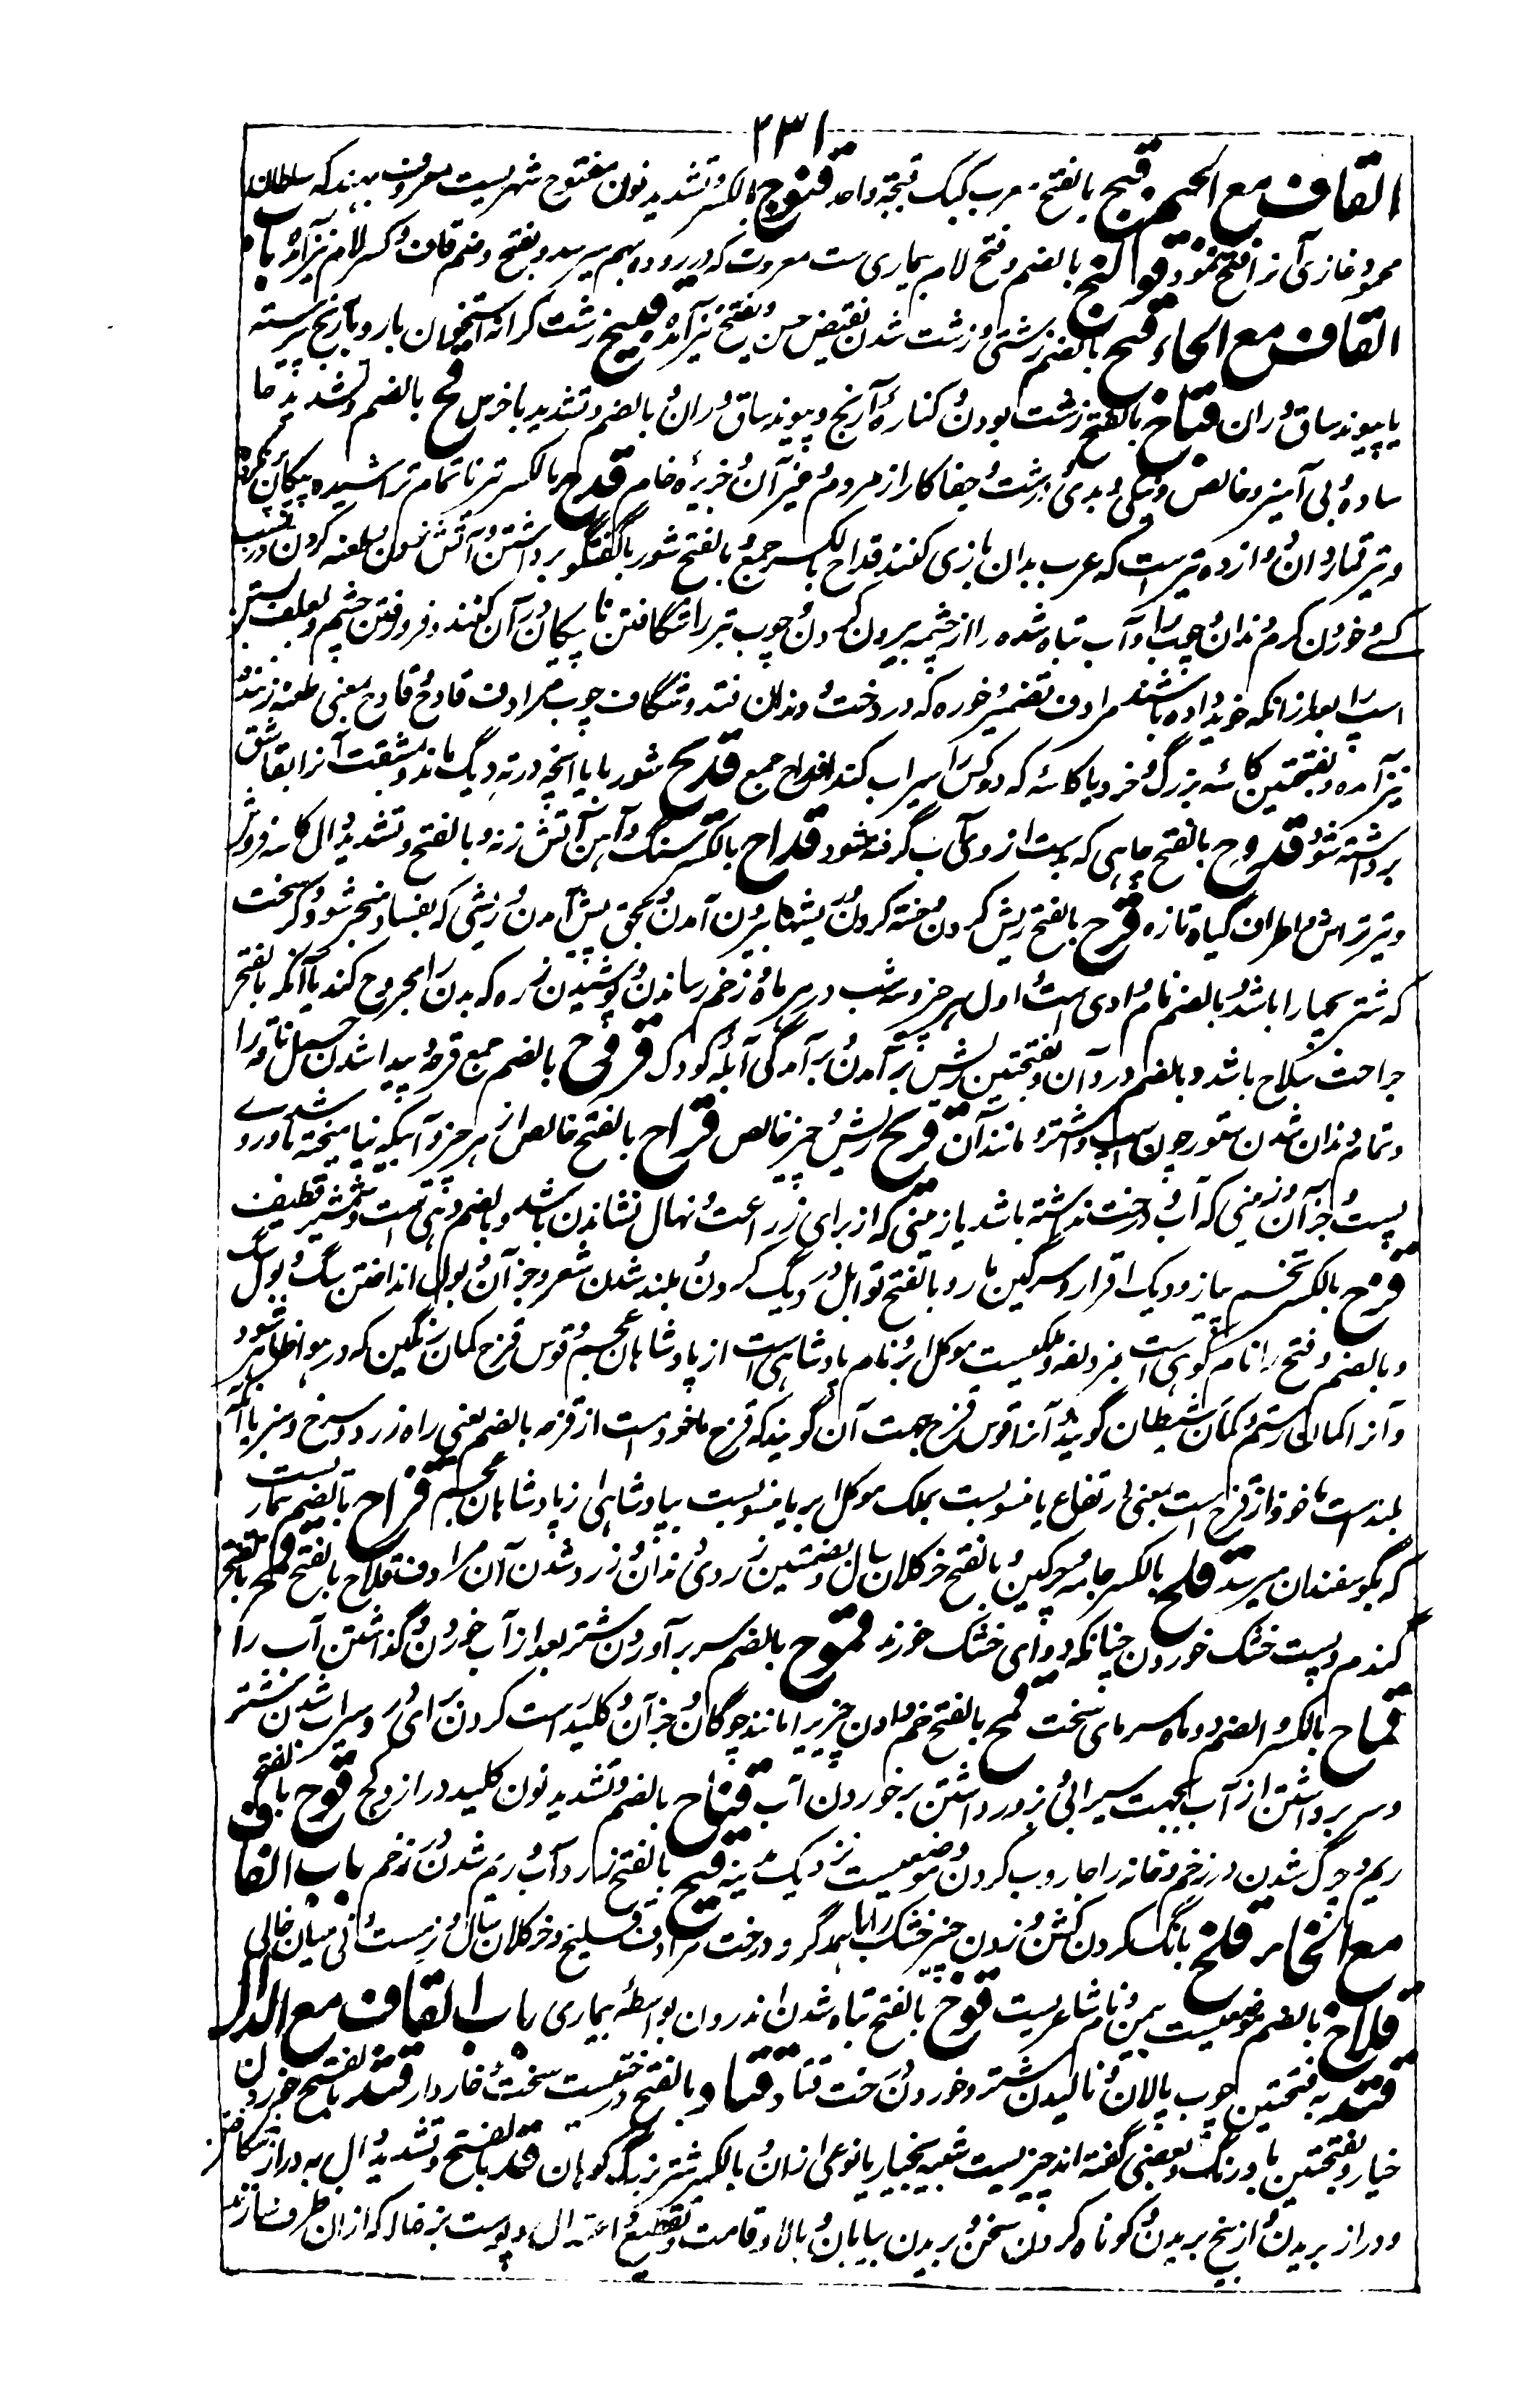 ۲۳۱
القاف مع الجیم قبج بالفتح معرب کبک قبجة واحد قنوج بالکسر و تشدید نون مفتوح شهریست معروف بهند که سلطان
محمود غازی آنرا فتح نمود قولنج بالضم و فتح لام بیماری ست معروف که در روده بهم میرسد و بفتح و ضم قاف و کسر لام نیز آمده باب
القاف مع الحاء قبح بالضم زشتی و زشت شدن نقیض حسن و بفتح نیز آمده قبیح زشت کرانه استخوان بازو بآرنج پیوسته
یا پیوند ساق و ران قباح بالفتح زشت بودن و کنارهٔ آرنج و پیوند ساق و ران و بالضم و تشدید با خرس قح بالضم و تشدید حا
ساده و بی آمیز و خالص و نیکی و بدی و درشت و جفاکار از مردم و غیر آن و خربزه خام قدح بالکسر تیر ناتمام تراشیده پیکان نکرده
و تیر قمار و آن دوازده تیرست که عرب بدان بازی کنند قداح بالکسر جمع و بالفتح شوربا بکفگیر برداشتن و آتش زدن و طعنه کردن در نسب
کسے و خوردن کرم دندان و چوب را و آب تباه شده را از چشمه بیرون کردن و چوب تیر را شگافتن تا پیکان در آن کنند و فرو رفتن چشم و بعلف بستن
اسپ را بعد از آنکه خوید داده باشند مرادف تضمیر خوره که در درخت و دندان فتد و شگاف چوب مرادف قادح قادح بمعنی طعنه زننده
نیز آمده و بفتحتین کاسه بزرگ و خرد یا کاسه که دو کس را سیراب کند اقداح جمع قدیح شوربا یا آنچه در ته دیگ ماند و بمشقت آنرا بقاشق
برداشته شود قدوح بالفتح چاهی که بدست از وی آب گرفته شود قداح بالکسر سنگ و آهن آتش زنه و بالفتح و تشدید دال کاسه فروش
و تیر تراش و اطراف گیاه تازه قرح بالفتح ریش کردن و خسته کردن و ریشها بیرون آمدن و بحق پیش آمدن و ریشی که بفساد منجر شود و گر سخت
که شتر بچها را باشد و بالضم نام وادی ست و اول هر چیز و سه شب در هر ماه و زخم رساندن و پوشیدن زره که بدن را مجروح کند یا آنکه بالفتح
جراحت بسلاح باشد و بالضم درد آن و بفتحتین ریش برآمدن و برآمدگی آبله کودک قروح بالضم جمع قرح و پیدا شدن حمل ناقه را
و تمام دندان شدن ستور چون اسپ و اشتر و مانند آن قریح ریش و چیز خالص قراح بالفتح خالص از هر چیز و آبیکه نیامیخته باورو شدے
پست و جز آن و زمینی که آب و درخت نداشته باشد یا زمینی که از برای زراعت و نهال نشاندن باشد و بالضم دهی ست و شمشیر قطیف
قزح بالکسر تخم پیاز و دیگ افزار و سرگین مار و بالفتح توابل در دیگ کردن و بلند شدن شعر و جز آن و بول انداختن سگ و بول سگ
و بالضم و فتح زا نام کوهی است بمزدلفه و ملکیست موکل ابر و نام پادشاهی است از پادشاهان عجم و قوس قزح کمان رنگین که در هوا ظاهر شود
و آنرا کمان رستم و کمان شیطان گویند و آنرا قوس قزح جهت آن گویند که قزح ماخوذ است از قزحه بالضم یعنی راه زرد و سرخ و سبز یا آنکه
بلند است ماخوذ از قزح است بمعنی ارتفاع یا منسوبست بملک موکل ابر یا منسوبست بپادشاهی از پادشاهان عجم قزاح بالضم بیماریست
که بگوسفندان میرسد قلح بالکسر جامه چرکین و بالفتح خر کلان سال و بفتحتین زردی دندان و زرد شدن آن مرادف قلاح بالفتح قمح بالفتح
گندم و پست خشک خوردن چنانکه دوای خشک خورند قموح بالضم سر برآوردن شتر بعد از آب خوردن و گذاشتن آب را
قماح بالکسر و الضم دو ماه سرمای سخت قنح بالفتح خم دادن چیزیرا مانند چوگان و جز آن و کلید راست کردن برای در و سیراب شدن شتر
و سر برداشتن از آب بجهت سیرابی و بزور داشتن بر خوردن آب قناح بالضم و تشدید نون کلید دراز و کج قوح بالفتح
ریم و چرک شدن در زخم و خانه را جاروب کردن و موضعیست نزدیک مدینه قیح بالفتح زرد آب و ریم شدن در زخم باب القاف
مع الخاء قلخ بانگ کردن کشن و زدن چیز خشک را با همدگر و درخت مرادف قلیخ و خر کلان سال و زمست و نی میان خالی
قلاخ بالضم موضعیست بیمن و نام شاعریست قوخ بالفتح تباه شدن اندرون بواسطهٔ بیماری باب القاف مع الدال
قتد به فتحتین چوب پالان و نالیدن شتر و خوردن درخت قتاد قتاد بالفتح درختیست سخت و خاردار قثد بالفتح خوردن
خیار و بفتحتین بادرنگ و بعضی گفته اند چیزیست شبیه بخیار یا نوعی ازان و بالکسر شتر بزرگ کوهان قد بالفتح و تشدید دال به دراز شگافتن
و دراز بریدن و از بیخ بریدن و کوتاه کردن سخن و بریدن بیابان و بالا و قامت و تقطیع و اعتدال و پوست بزغاله که ازان ظرف سازند